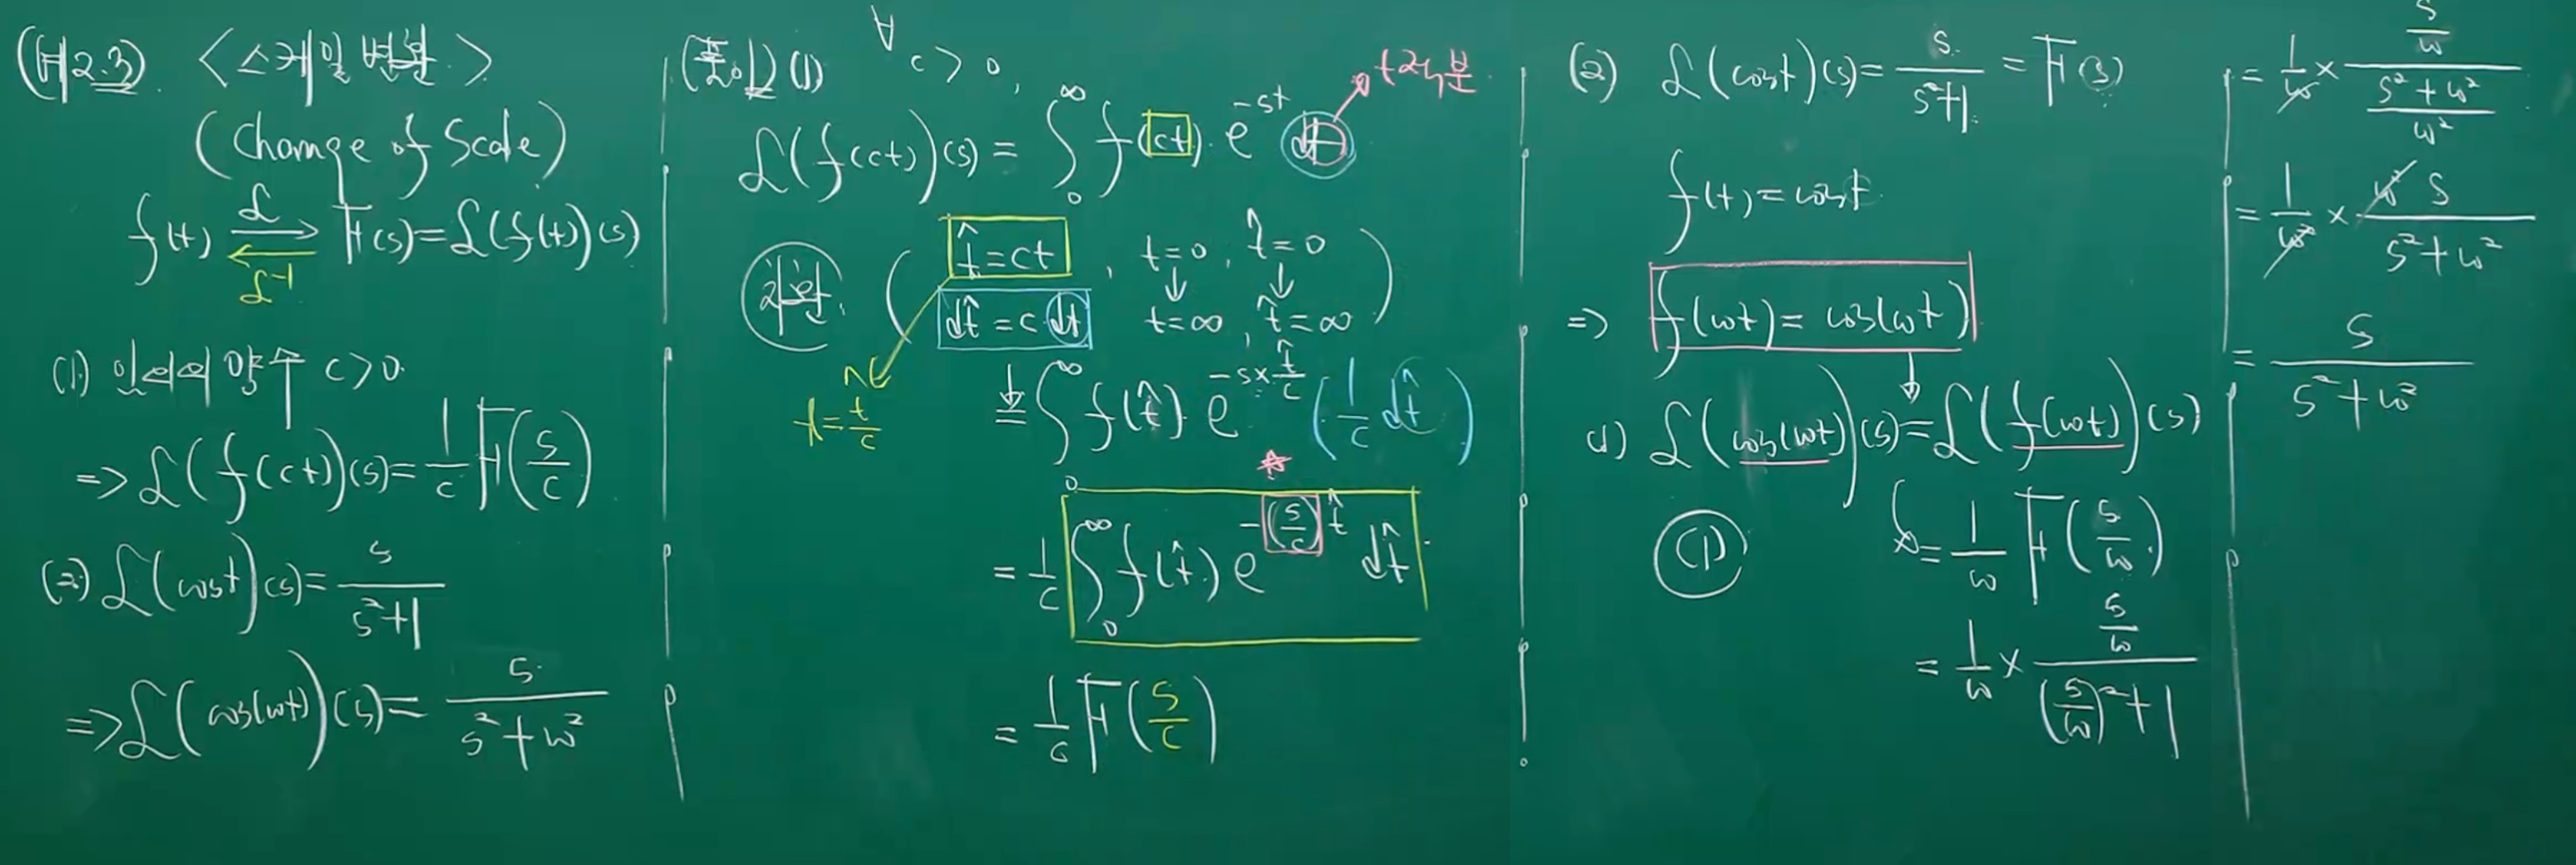 (예2.3) <스케일 변환>
(Change of Scale)
f(t) ⇄ F(s)=ℒ(f(t))(s)
ℒ
ℒ⁻¹
(1) 임의의 양수 c>0
=> ℒ(f(ct))(s)=1/c F(s/c)
(2) ℒ(cost)(s)=s/(s²+1)
=> ℒ(cos(wt))(s)=s/(s²+w²)
(풀이) (1) ∀c>0,
t적분
ℒ(f(ct))(s)=∫₀^∞ f(ct)·e^(-st) dt
치환. ( t̂=ct, t=0, t̂=0
↓ ↓
dt̂=c dt t=∞, t̂=∞ )
t=t̂/c
=∫₀^∞ f(t̂)·e^(-s×t̂/c) (1/c dt̂)
☆
=1/c ∫₀^∞ f(t̂) e^(-(s/c)t̂) dt̂
=1/c F(s/c)
(2) ℒ(cost)(s)=s/(s²+1)=F(s)
f(t)=cost
=> f(wt)=cos(wt)
∴) ℒ(cos(wt))(s)=ℒ(f(wt))(s)
(1) =1/w F(s/w)
=1/w × (s/w)/((s/w)²+1)
=1/w × (s/w)/((s²+w²)/w²)
=1/w² × w² s/(s²+w²)
=s/(s²+w²)